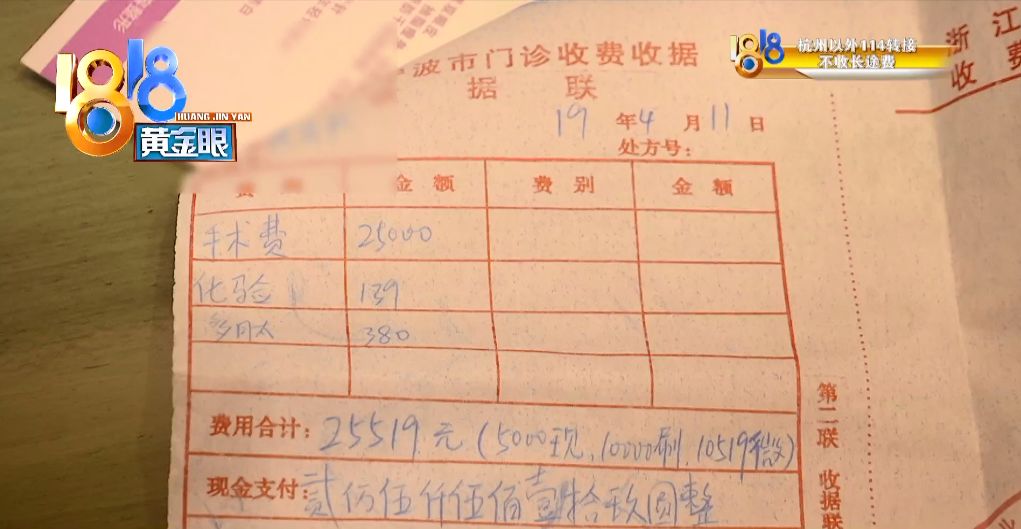 1818
HUANG JIN YAN
黄金眼
1818
杭州以外114转接
不收长途费
波市门诊收费收据
据 联
19 年 4 月 11 日
处方号:
金 额 费 别 金 额
手术费 25000
化验 139
380
费用合计: 25519元 (5000现, 10000刷, 10519微)
现金支付: 贰仟伍佰壹拾玖圆整
第二联 收据联
浙 江
收 费